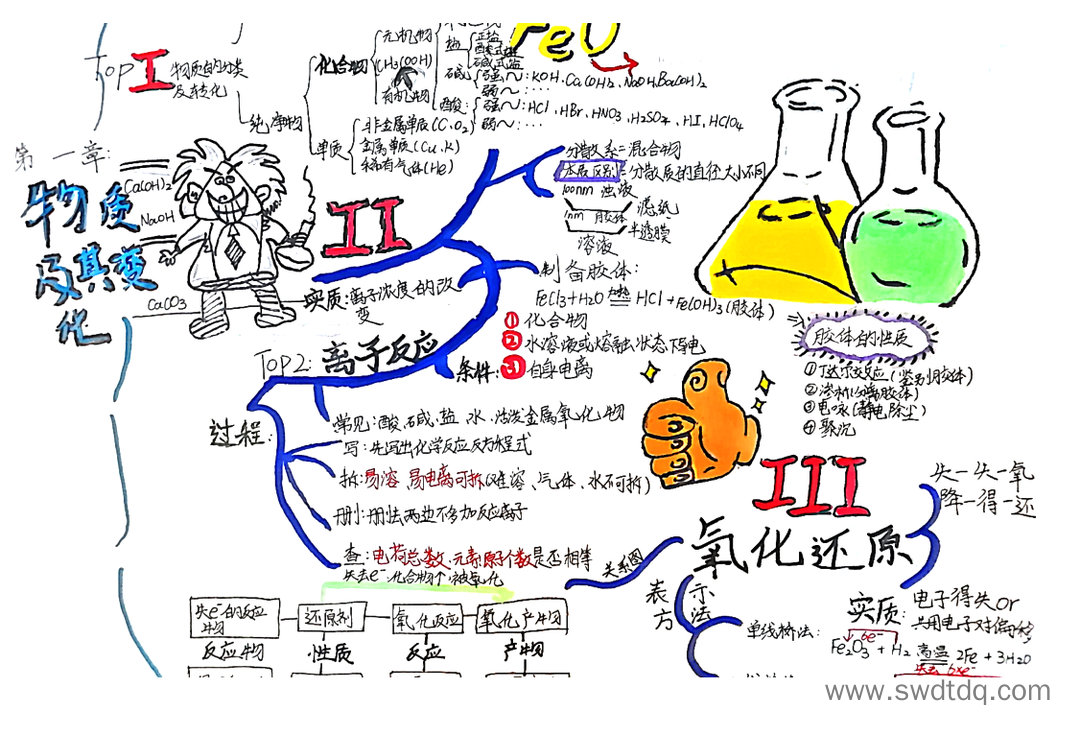 FeO
Top I
物质的分类
及转化
纯净物
化合物
无机物
CH3COOH
有机物
盐
正盐
酸式盐
碱式盐
碱
强~:KOH、Ca(OH)2、NaOH、Ba(OH)2
弱~:…
酸:
强~:HCl、HBr、HNO3、H2SO4、HI、HClO4
弱~:…
单质
非金属单质(C、O2)
金属单质(Cu、K)
稀有气体(He)
第一章:
物质
及其变
化
Ca(OH)2
NaOH
CaCO3
II
分散系=混合物
本质区别=分散质的直径大小不同
100nm 浊液
滤纸
1nm 胶体
半透膜
溶液
制备胶体:
FeCl3+H2O 加热 HCl+Fe(OH)3(胶体)
胶体的性质
①丁达尔效应(鉴别胶体)
②渗析(分离胶体)
③电泳(静电除尘)
④聚沉
实质:离子浓度的改
变
Top2:离子反应
条件:
①化合物
②水溶液或熔融状态下导电
③自身电离
过程:
常见:酸、碱、盐、水、活泼金属氧化物
写:先写出化学反应反方程式
拆:易溶、易电离可拆(难溶、气体、水不可拆)
删:删去两边不参加反应离子
查:电荷总数、元素原子个数是否相等
III
氧化还原
失一失一氧
降一得一还
关系图
失去e-化合物个↑被氧化
失e-的反应
物
还原剂
氧化反应
氧化产物
反应物
性质
反应
产物
表
示
方
法
单线桥法:
实质:
电子得失or
共用电子对偏移
6e-
Fe2O3 + H2 高温 2Fe + 3H2O
失去6xe-
www.swdtdq.com